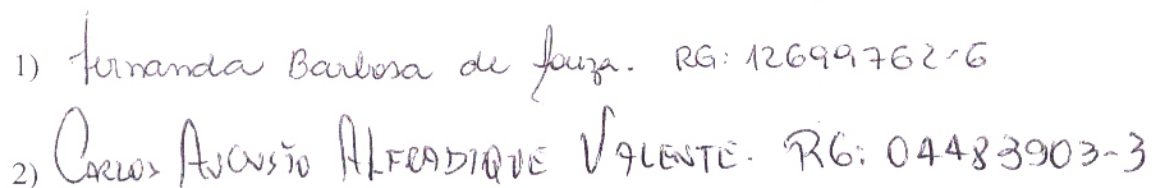 1) Fernanda Barbosa de Souza. RG: 12699762-6
2) CARLOS AUGUSTO ALFRADIQUE VALENTE. RG: 04483903-3